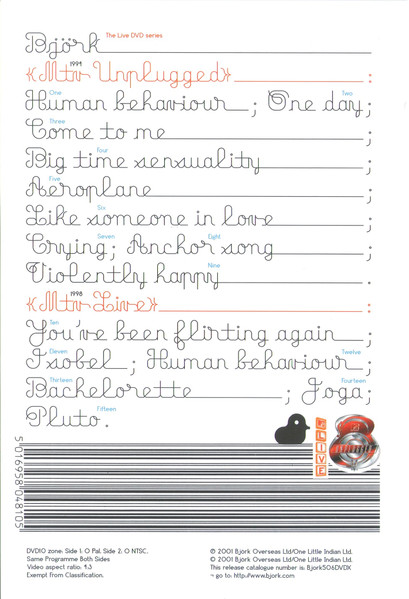 Björk The Live DVD series
1994
«Mtv Unplugged» :
One Two
Human behaviour ; One day ;
Three
Come to me ;
Four
Big time sensuality ;
Five
Aeroplane ;
Six
Like someone in love ;
Seven Eight
Crying ; Anchor song ;
Nine
Violently happy
1998
«Mtv Live» :
Ten
You've been flirting again ;
Eleven Twelve
Isobel ; Human behaviour ;
Thirteen Fourteen
Bachelorette ; Joga ;
Fifteen
Pluto.
LIVE
5 016958 048105
DVD10 zone. Side 1: O Pal. Side 2: O NTSC.
Same Programme Both Sides
Video aspect ratio: 4:3
Exempt From Classification.
℗ 2001 Bjork Overseas Ltd/One Little Indian Ltd.
© 2001 Bjork Overseas Ltd/One Little Indian Ltd.
This release catalogue number is: Bjork506DVDX
→ go to: http://www.bjork.com